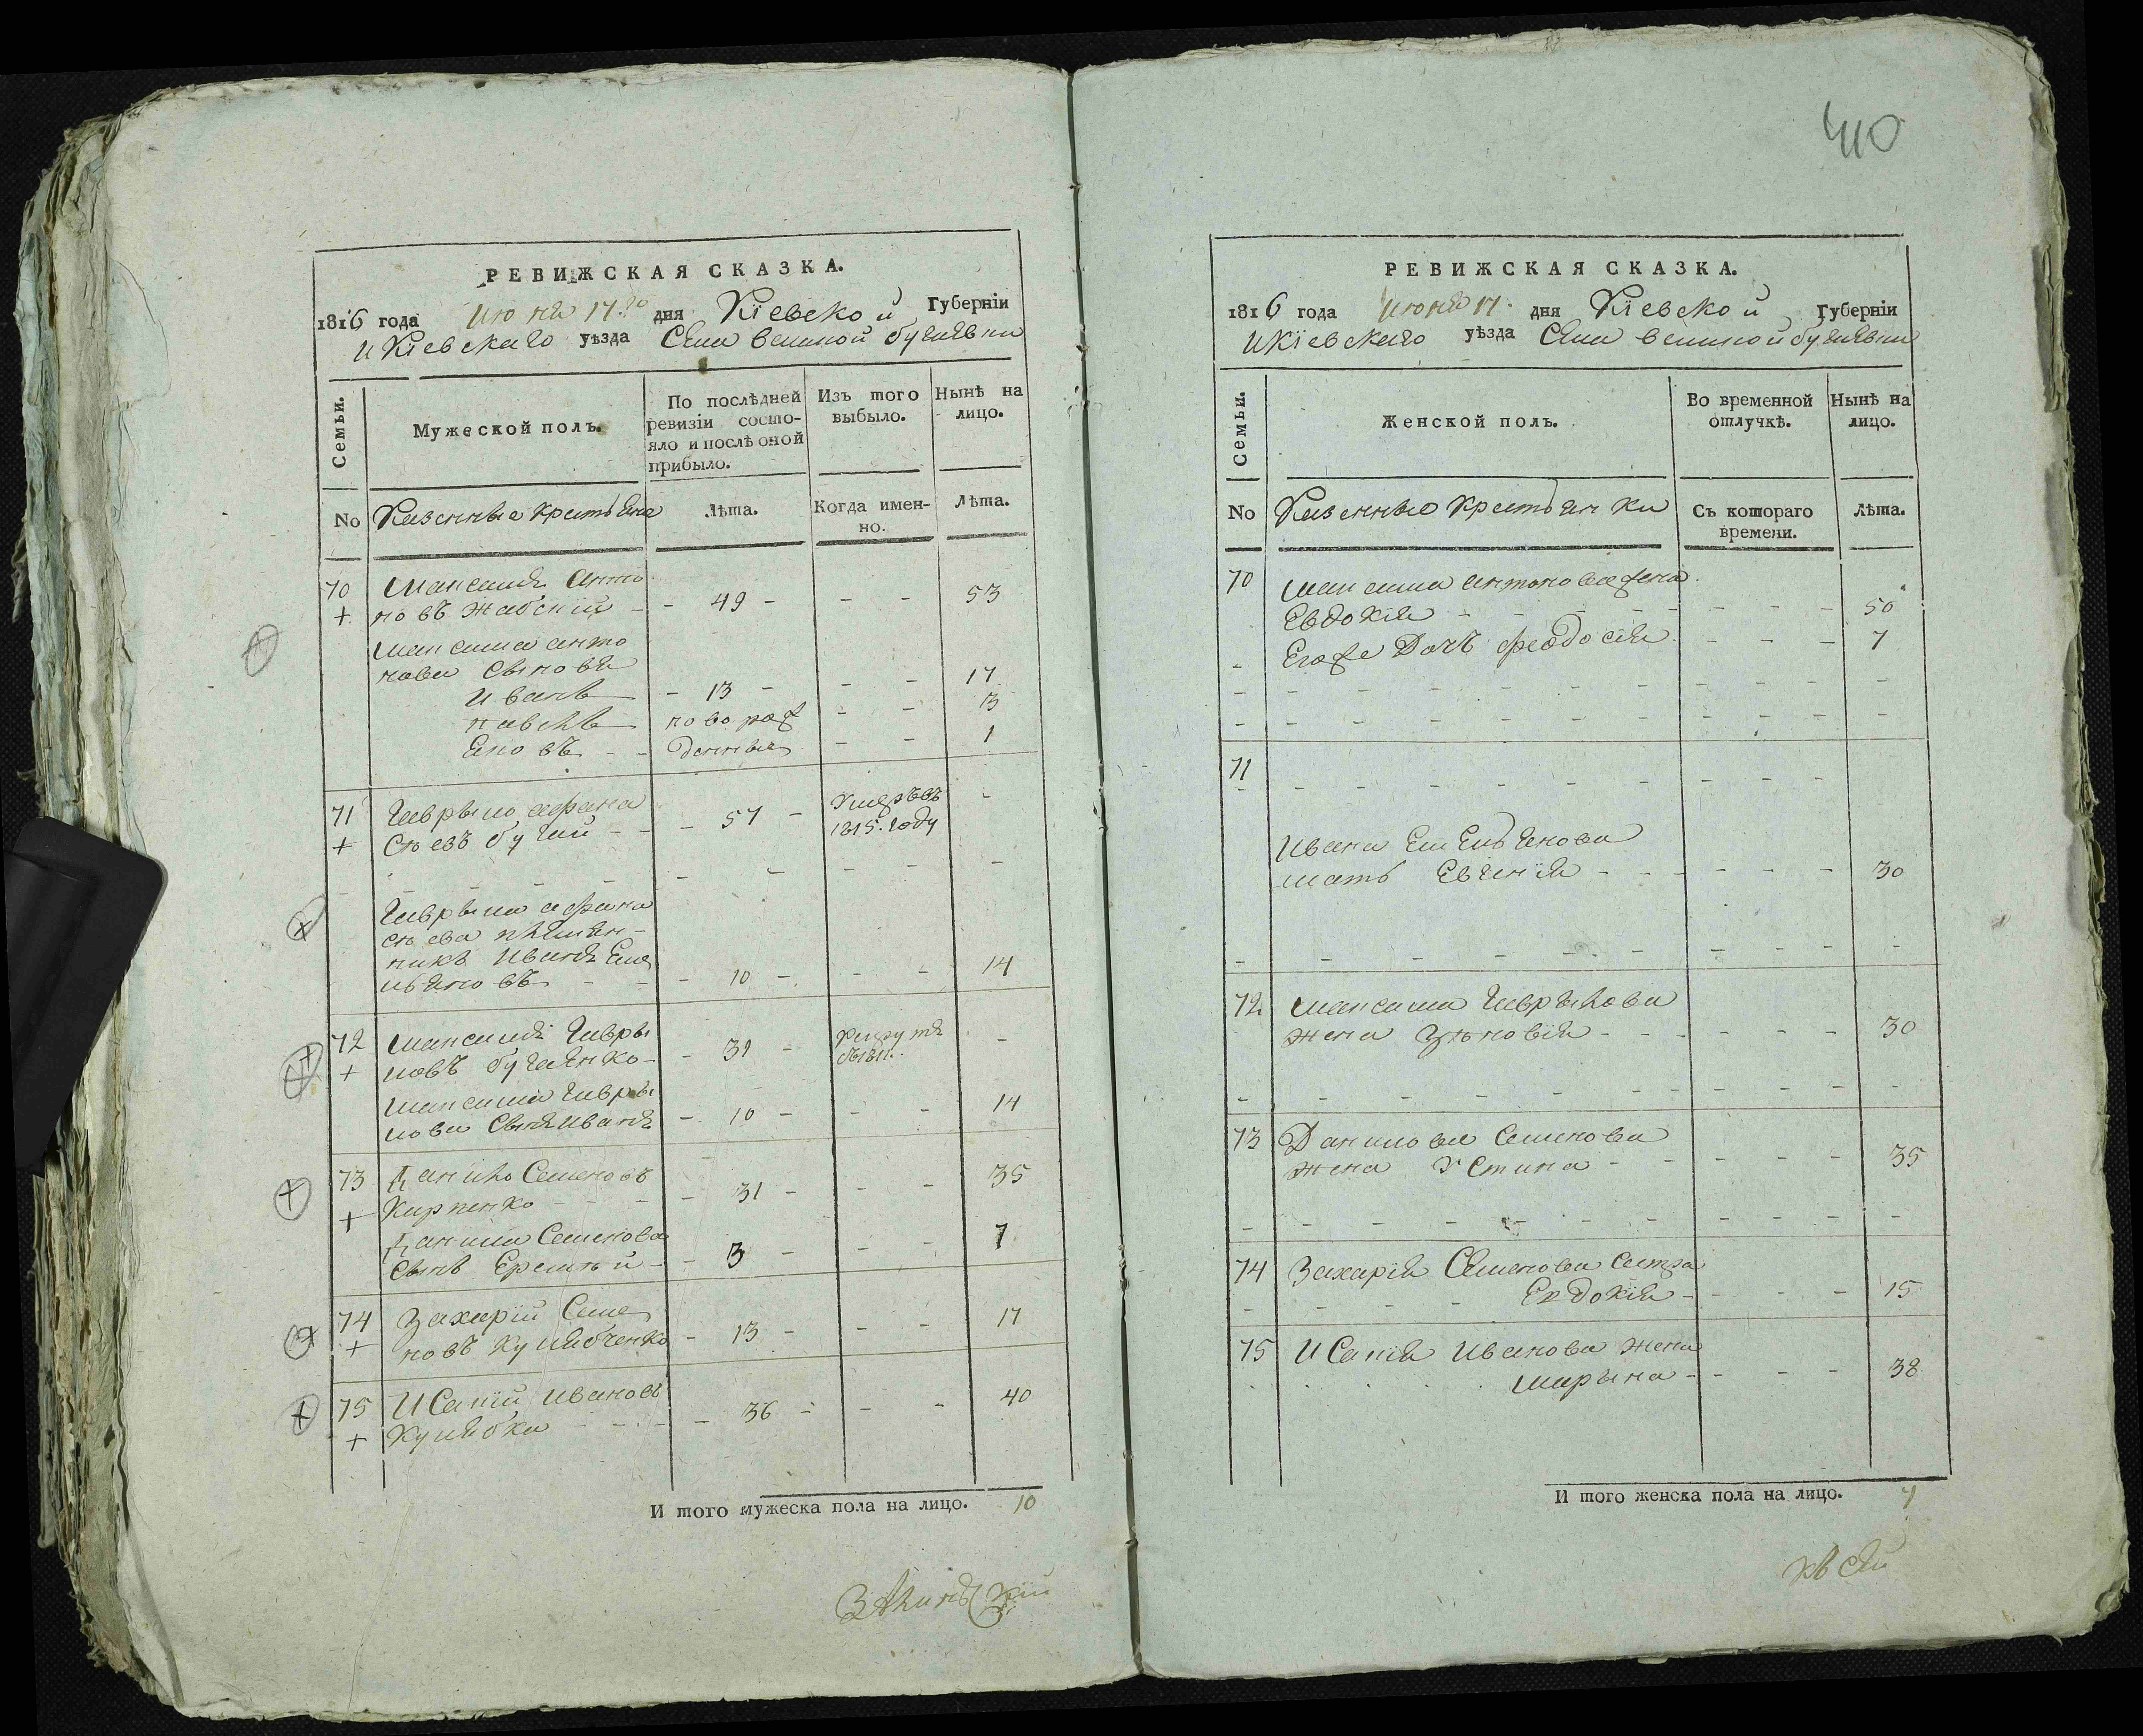 410
РЕВИЖСКАЯ СКАЗКА.
1816 года Июня 17го дня Кїевской Губернїи
и Кїевскаго уѣзда Села великой бугаевки
Семьи.
Мужеской полъ.
По послѣдней
ревизїи состо-
яло и послѣ оной
прибыло.
Изъ того
выбыло.
Нынѣ на
лицо.
No Казенные крестьяне
Лѣта.
Когда имен-
но.
Лѣта.
70 Максимъ Анто
новъ Жабскїй - 49 - - - 53
Максима Анто
нова Сыновья
Иванъ - 13 - - - 17
павелъ новорож - - 3
Яковъ - - денные - - 1
71 Гаврыло афана
сьевъ бугай - - 57 - Умеръ въ
1815. году -
Гаврыла афана
сьева племян-
никъ Иванъ Еме
льяновъ - - 10 - - - 14
72 Максимъ Гавры
ловъ бугаенко - - 39 - -
Максима Гавры
лова Сынъ Иванъ - 10 - - - 14
73 Данило Семеновъ
Карпенко - - 31 - - - 35
Данила Семенова
Сынъ Еремѣй - - 3 - - - 7
74 Захарїй Семе
новъ Кулябченко - 13 - - - 17
75 Исакїй Ивановъ
Кулябка - - 36 - - - 40
И того мужеска пола на лицо. 10
РЕВИЖСКАЯ СКАЗКА.
1816 года Июня 17. дня Кїевской Губернїи
и Кїевскаго уѣзда Села великой бугаевки
Семьи.
Женской полъ.
Во временной
отлучкѣ.
Нынѣ на
лицо.
No Казенные крестьянки
Съ котораго
времени.
Лѣта.
70 Максима антонова жена
Евдокїя - - - 50
Егоже Дочъ феодосїя - - - 7
71
Ивана Емельянова
мать - - - 30
72 Максима Гаврылова
жена Зѣновїя - - - 30
73 Данилова Семенова
жена Устина - - - 35
74 Захарїя Семенова Сестра
Евдокїя - - - 15
75 Исакїя Иванова жена
Марына - - - 38
И того женска пола на лицо. 7